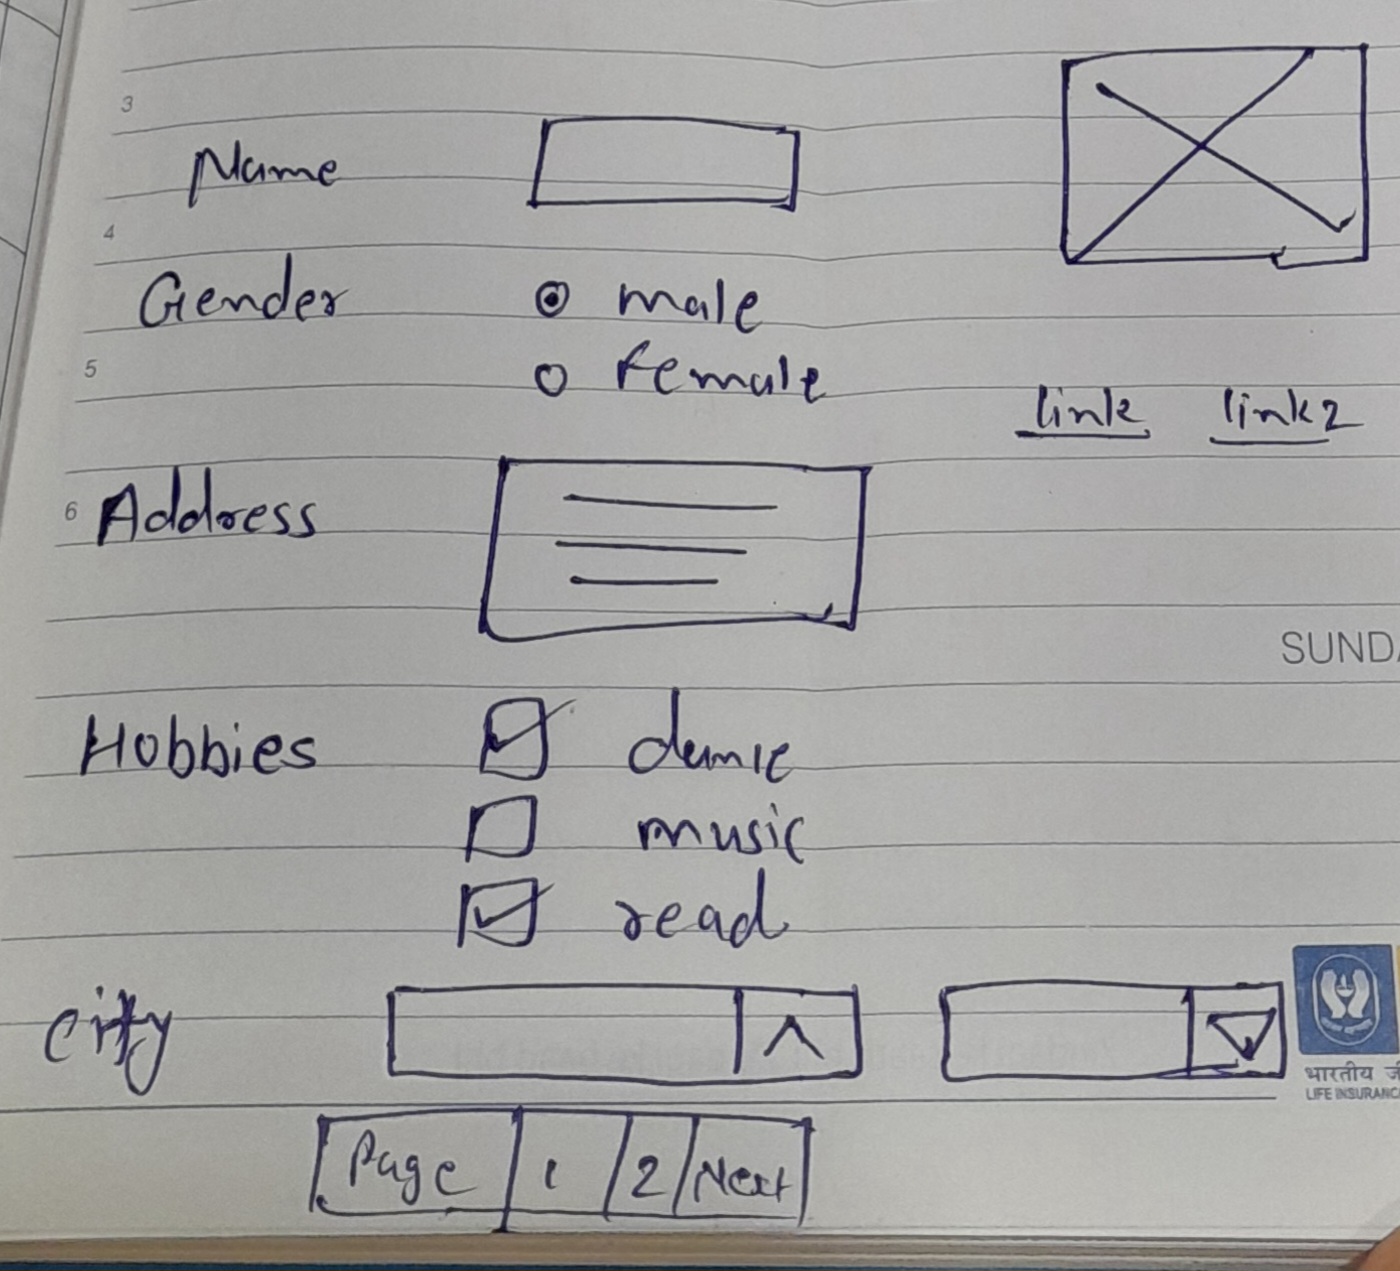 3
Name
4
Gender male
5
female
link link2
6 Address
SUNDA
Hobbies
music
read
City
भारतीय जी
LIFE INSURANC
Page 1 2 Next